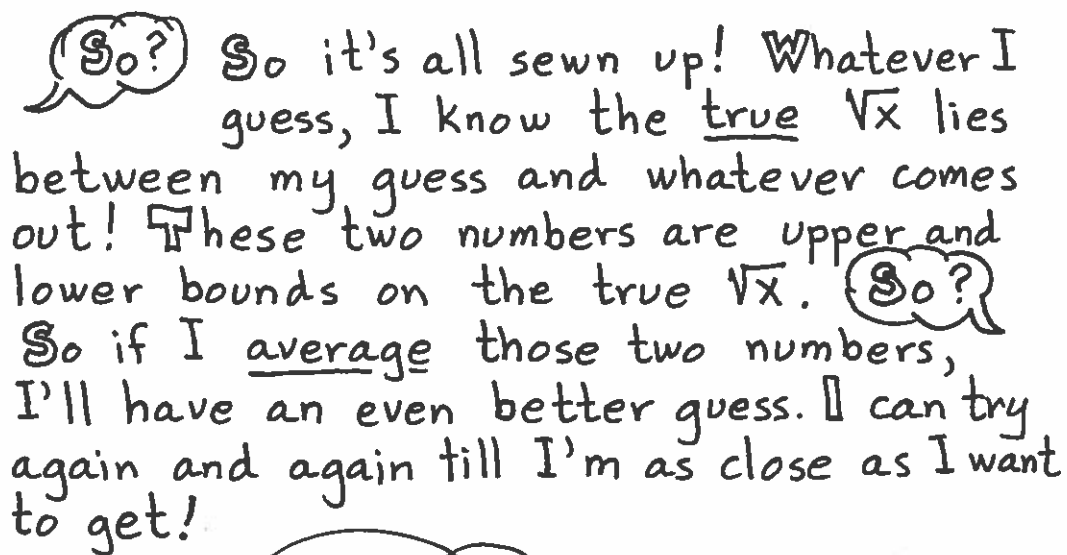 So? So it's all sewn up! Whatever I
guess, I know the true √x lies
between my guess and whatever comes
out! These two numbers are upper and
lower bounds on the true √x. So?
So if I average those two numbers,
I'll have an even better guess. I can try
again and again till I'm as close as I want
to get!